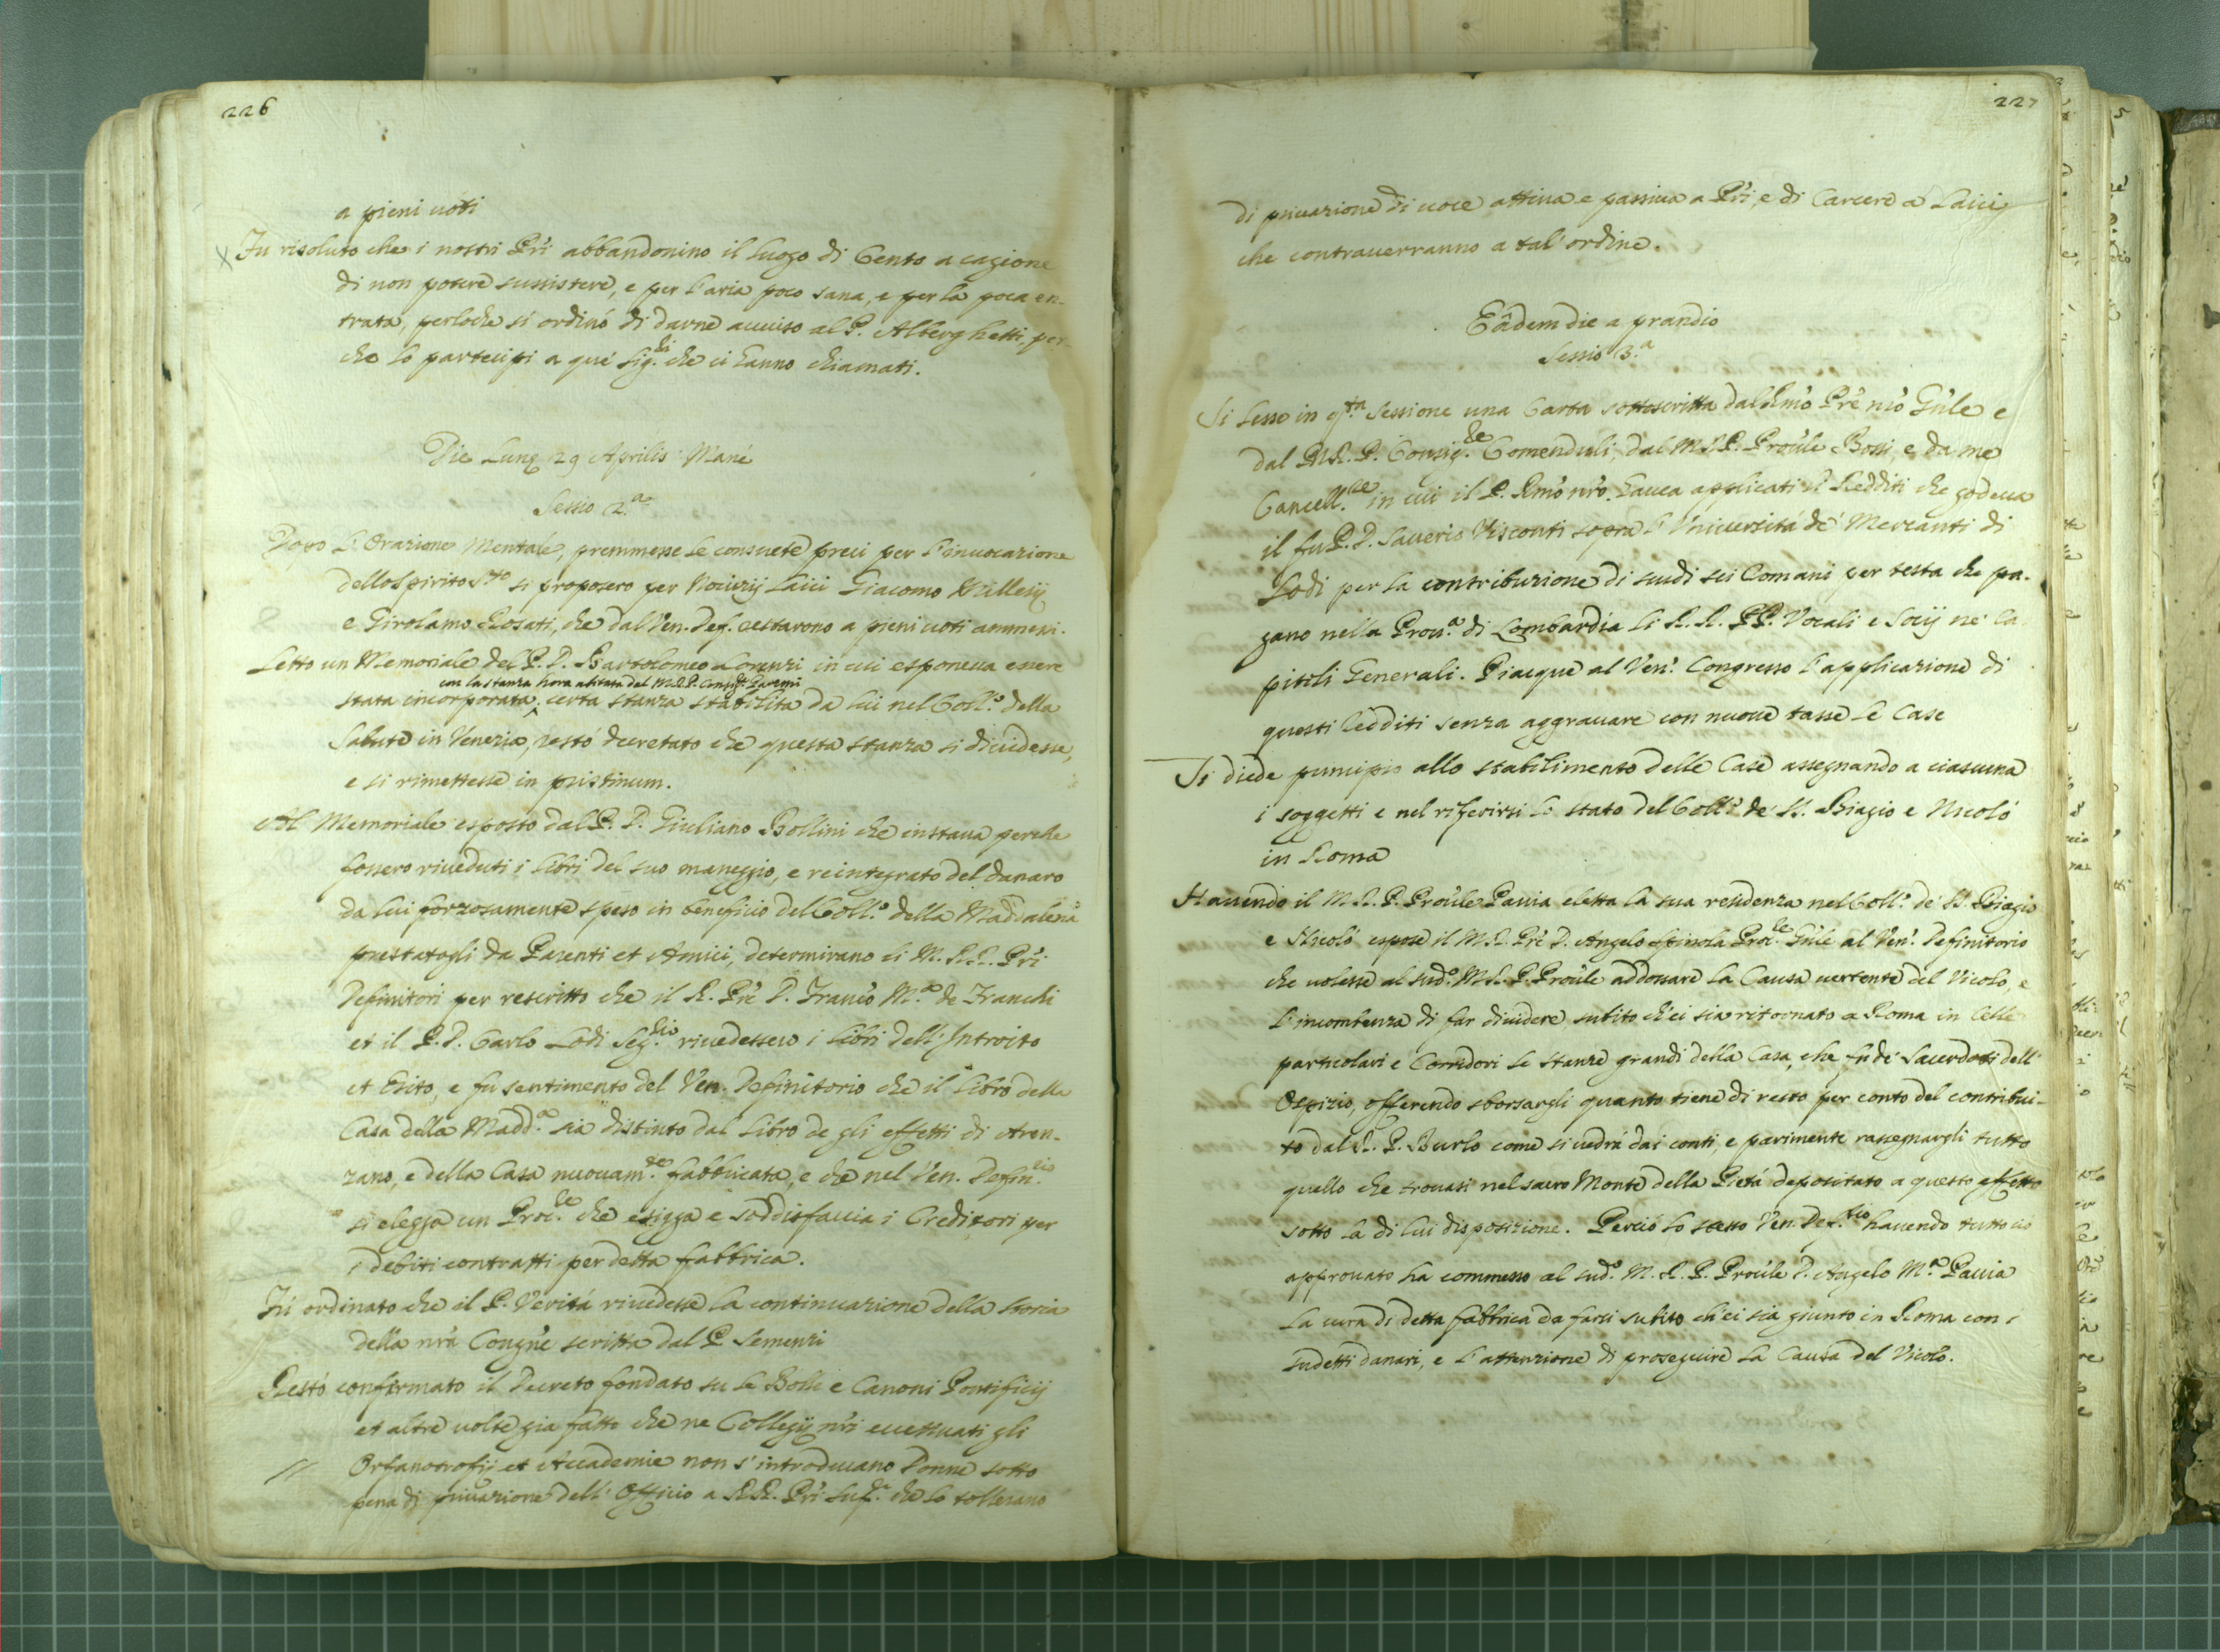 226
a pieni uoti
Fu risoluto che i nostri Pr̃i abbandonino il luogo di Cento a cagione
di non potere sussistere, e per l'aria poco sana, e per la poca en-
trata, perloche si ordinò di darne auuiso al P. Alberghetti, per-
che lo partecipi a que' Sig.ri che ci hanno chiamati.
Die Lunę 29 Aprilis Mané
Sessio 2.a
Dopo l'Orazione Mentale, premmesse le consuete preci per l'inuocazione
dello Spirito S.to si proposero per Nouizij Laici Giacomo
e Girolamo Rosati, che dal Ven. Def. restarono a pieni uoti ammessi.
Letto un Memoriale del P. D. Bartolomeo Lorenzi in cui esponeua essere
con la stanza hora abitata dal M.R.P. Consig.re
stata incorporata, certa stanza stabilita da lui nel Coll.o della
Salute in Venezia, restò decretato che questa stanza si diuidesse,
e si rimettesse in pristinum.
Al Memoriale esposto dal P. D. Giuliano Bollini che instaua perche
fossero riueduti i libri del suo maneggio, e reintegrato del danaro
da lui forzosamente speso in beneficio del Coll.o della Maddalena
prestatogli da Parenti et Amici, determinano li M. R.R. Pr̃i
Definitori per rescritto che il R. Pr̃e D. Franc̃o M.a de Franchi
et il P. D. Carlo Lodi riuedessero i libri dell'Introito
et Esito, e fu sentimento del Ven. Definitorio che il libro della
Casa della Madd.a sia distinto dal Libro de gli effetti di Aren-
zano, e della Casa nuouam.te fabbricata, e che nel Ven. Defin.rio
si elegga un Proc.re che esigga e soddisfaccia i Creditori per
i debiti contratti per detta fabbrica.
Fù ordinato che il P. Verità riuedesse la continuazione della Storia
della nr̃a Congñe scritta dal P. Semenzi
Restò confermato il Decreto fondato su le Bolle e Canoni Pontificij
et altre uolte gia fatto che ne Collegij nr̃i eccettuati gli
Orfanotrofij et Accademie non s'introducano Donne sotto
pena di priuazione dell'Officio a RR. Pr̃i Sup.ri che lo tollerano
227
di priuazione di uoce attiua e passiua a Pr̃i, e di Carcere a' Laici
che contrauerranno a tal'ordine.
Eâdem die a prandio
Sessio 3.a
Si lesse in q.ta Sessione una Carta sottoscritta dal Rm̃o Pr̃e nr̃o Gñle e
dal M.R. P. Consig.re Comenduli, dal M.R.P. Proũle Bossi, e da me
Cancell.re in cui il P. Rm̃o nr̃o. haueа applicati i Redditi che godeua
il fu P. D. Sauerio Visconti sopra l'Vniuersità de' Mercanti di
Lodi per la contribuzione di scudi sei Romani per testa che pa-
gano nella Prou.a di Lombardia li R. R. PP. Vocali e Socij ne' Ca
pitoli Generali. Piacque al Ven. Congresso l'applicazione di
questi redditi senza aggrauare con nuoue tasse le Case
Si diede principio allo stabilimento delle Case assegnando a ciascuna
i soggetti e nel riferirsi lo stato del Coll.o de' SS. Biagio e Nicolò
in Roma
Hauendo il M. R. P. Proũle Pauia eletta la sua residenza nel Coll.o de' SS. Biagio
e Nicolò espose il M.R. Pr̃e D. Angelo Spinola Proc.re Gñle al Ven. Definitorio
che uolesse al sud.o M.R. P. Proũle addossare la Causa uertente del Vicolo, e
l'incombenza di far diuidere subito ch'ei sia ritornato a Roma in Celle
particolari e Corridori le stanze grandi della Casa, che fù de' Sacerdoti dell'
Ospizio, offerendo sborsargli quanto tiene di resto per conto del contribui-
to dal R. P. Burlo come si uedrà dai conti, e parimente rassegnargli tutto
quello che trouasi nel sacro Monte della Pietà depositato a questo effetto
sotto la di lui disposizione. Perciò lo stesso Ven. Def.rio hauendo tutto ciò
approuato ha commesso al sud.o M. R. P. Proũle D. Angelo M.a Pauia
la cura di detta fabbrica da farsi subito ch'ei sia giunto in Roma con i
sudetti danari, e l'attenzione di proseguire la Causa del Vicolo.